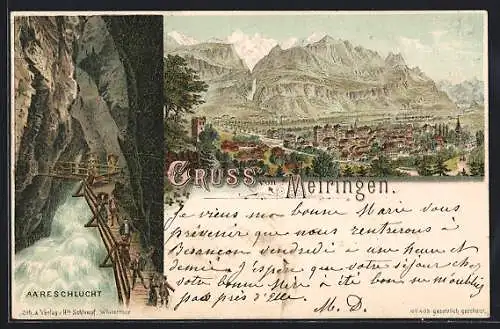 GRUSS AUS MEIRINGEN.
Je viens ma bonne Marie vous
prévenir que nous rentrerons à
Besançon vendredi à une heure et
demie j'espère que votre séjour chez
votre bonne Mère a été bon ne m'oubliez
pas près d'elle.
M. D.
AARESCHLUCHT
Lith. & Verlag v. Hch Schlumpf, Winterthur
gesetzlich geschützt.